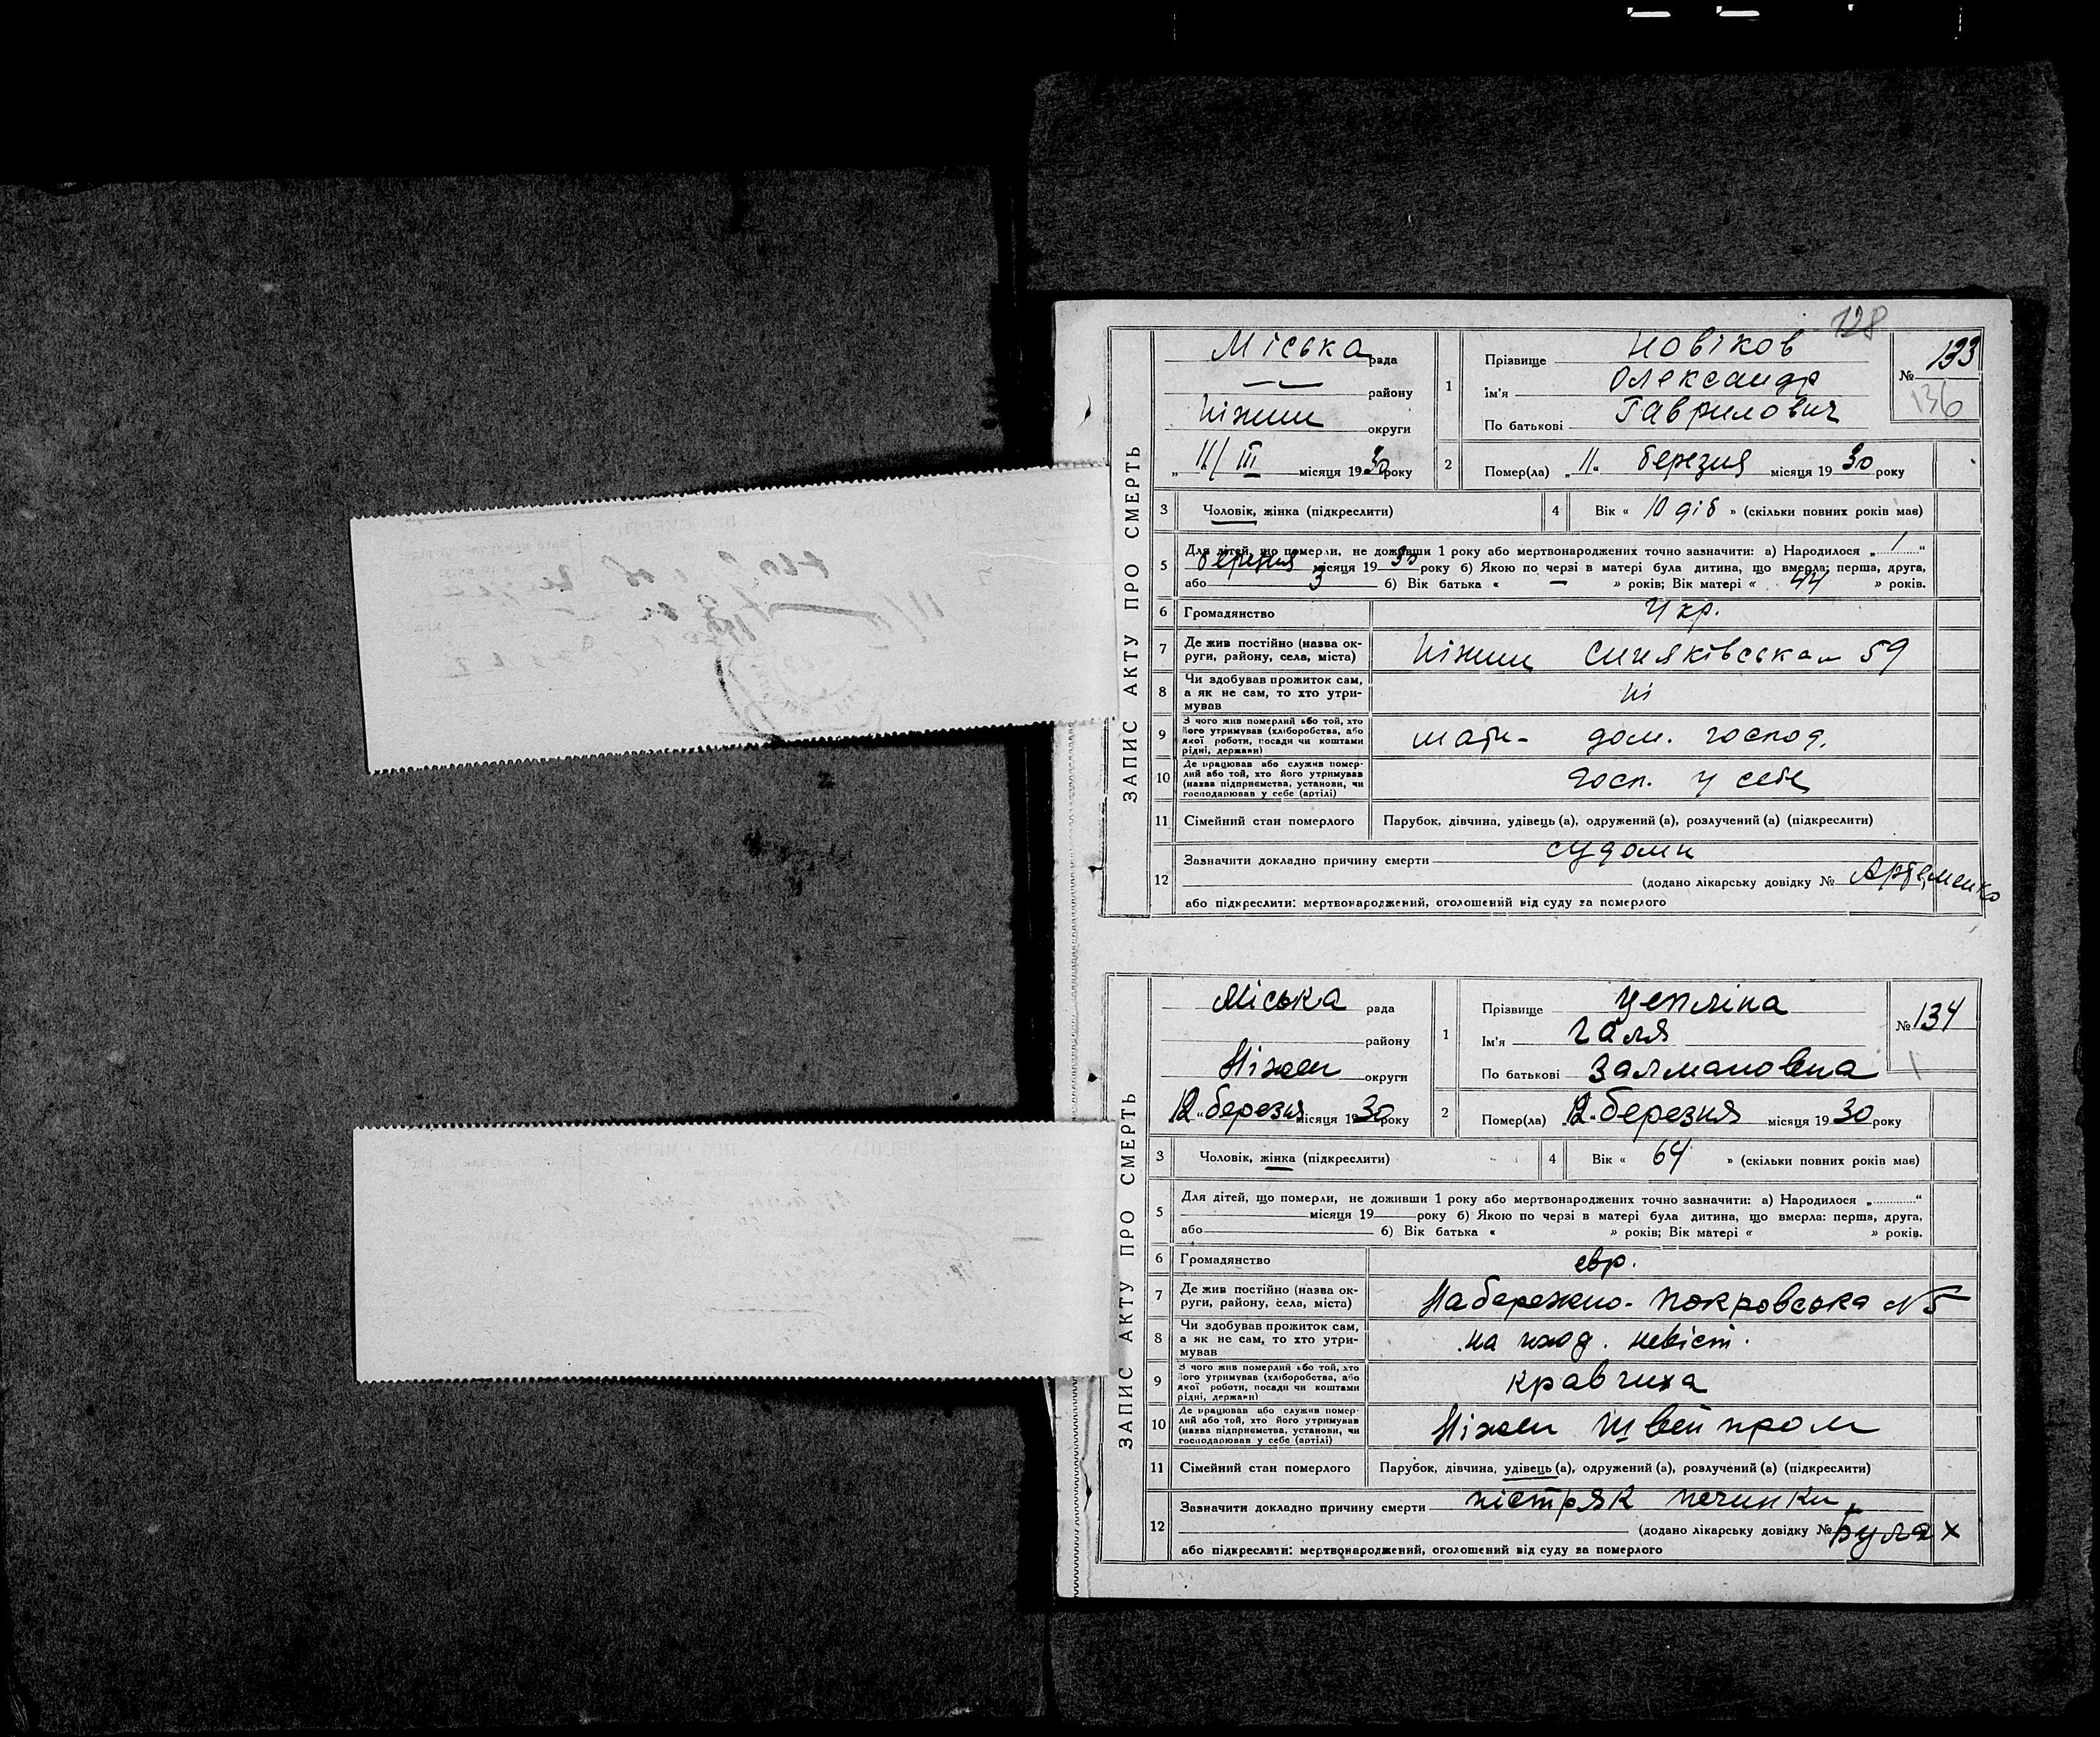 128
ЗАПИС АКТУ ПРО СМЕРТЬ
Міська рада
району
Ніжин округи
„ 11/III місяця 1930 року
1
Прізвище Новіков
Ім'я Олександр
По батькові Гаврилович
№ 133
136
2 Помер(ла) „11“ березня місяця 1930 року
3 Чоловік, жінка (підкреслити)
4 Вік « 10 діб » (скільки повних років має)
5 Для дітей, що померли, не доживши 1 року або мертвонароджених точно зазначити: а) Народилося „ 1 “
березня місяця 1930 року б) Якою по черзі в матері була дитина, що вмерла: перша, друга,
або 3 б) Вік батька « — » років; Вік матері « 44 » років.
6 Громадянство Укр.
7 Де жив постійно (назва ок-
руги, району, села, міста) Ніжин Синяківська 59
8 Чи здобував прожиток сам,
а як не сам, то хто утри-
мував ні
9 З чого жив померлий або той, хто
його утримував (хліборобства, або
якої роботи, посади чи коштами
рідні, держави) мати- дом. господ.
10 Де працював або служив помер-
лий або той, хто його утримував
(назва підприємства, установи, чи
господарював у себе (артілі) госп. у себе
11 Сімейний стан померлого Парубок, дівчина, удівець (а), одружений (а), розлучений (а) (підкреслити)
12 Зазначити докладно причину смерти судоми
(додано лікарську довідку № Артеменко
або підкреслити: мертвонароджений, оголошений від суду за померлого
ЗАПИС АКТУ ПРО СМЕРТЬ
Міська рада
району
Ніжен округи
„12“ березня місяця 1930 року
1
Прізвище Цепліна
Ім'я Галя
По батькові Залмановна
№ 134
2 Помер(ла) „12“ березня місяця 1930 року
3 Чоловік, жінка (підкреслити)
4 Вік « 64 » (скільки повних років має)
5 Для дітей, що померли, не доживши 1 року або мертвонароджених точно зазначити: а) Народилося „ “
місяця 19 року б) Якою по черзі в матері була дитина, що вмерла: перша, друга,
або б) Вік батька « » років; Вік матері « » років.
6 Громадянство євр.
7 Де жив постійно (назва ок-
руги, району, села, міста) Набережно-Покровська №5
8 Чи здобував прожиток сам,
а як не сам, то хто утри-
мував на невіст.
9 З чого жив померлий або той, хто
його утримував (хліборобства, або
якої роботи, посади чи коштами
рідні, держави) кравчиха
10 Де працював або служив помер-
лий або той, хто його утримував
(назва підприємства, установи, чи
господарював у себе (артілі) Ніжен Швейпром
11 Сімейний стан померлого Парубок, дівчина, удівець (а), одружений (а), розлучений (а) (підкреслити)
12 Зазначити докладно причину смерти пістряк печинки,
(додано лікарську довідку № Булах
або підкреслити: мертвонароджений, оголошений від суду за померлого